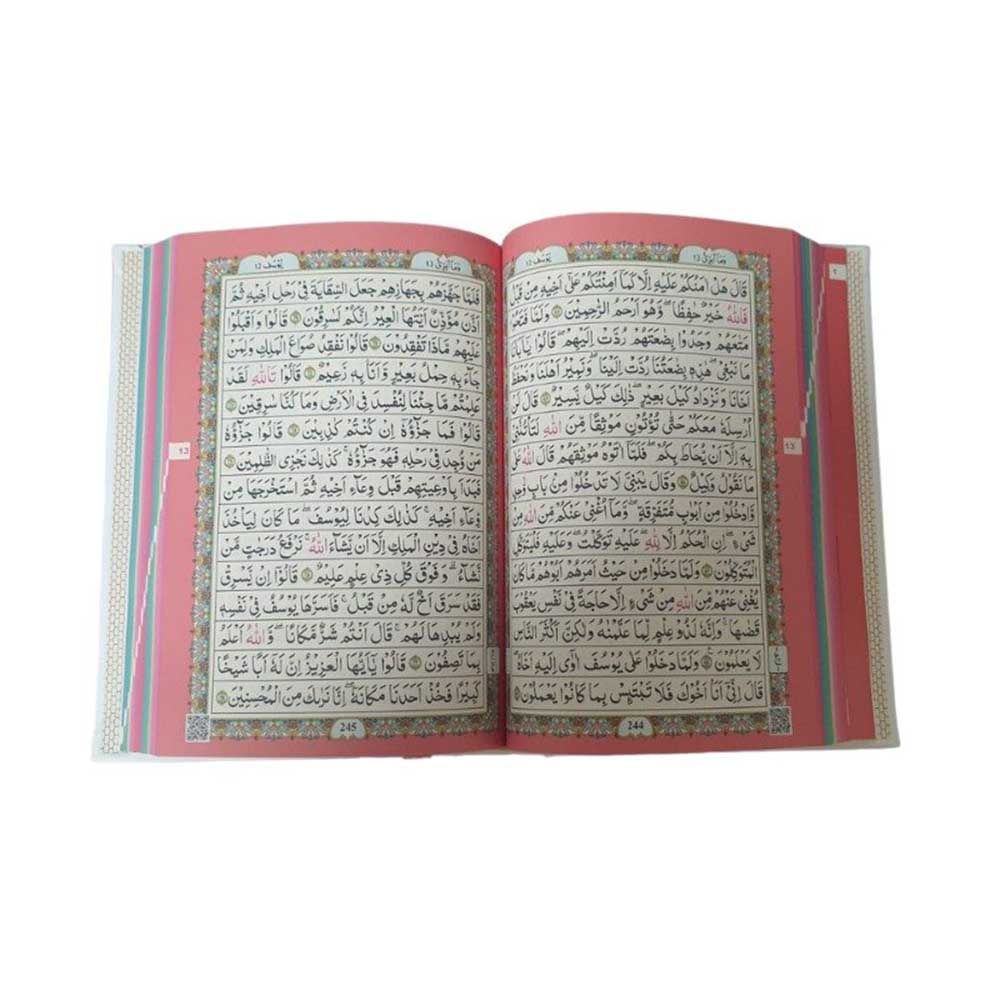 وَمَآ اُبَرِّئُ 13
يُوْسُف 12
قَالَ هَلْ اٰمَنُكُمْ عَلَيْهِ اِلَّا كَمَآ اَمِنْتُكُمْ عَلٰٓى اَخِيْهِ مِنْ قَبْلُ
فَاللّٰهُ خَيْرٌ حٰفِظًا ۖ وَّهُوَ اَرْحَمُ الرّٰحِمِيْنَ ﴿٦٤﴾ وَلَمَّا فَتَحُوْا
مَتَاعَهُمْ وَجَدُوْا بِضَاعَتَهُمْ رُدَّتْ اِلَيْهِمْ ۗ قَالُوْا يٰٓاَبَانَا
مَا نَبْغِيْ ۗ هٰذِهٖ بِضَاعَتُنَا رُدَّتْ اِلَيْنَا ۚ وَنَمِيْرُ اَهْلَنَا وَنَحْفَظُ
اَخَانَا وَنَزْدَادُ كَيْلَ بَعِيْرٍ ۗ ذٰلِكَ كَيْلٌ يَّسِيْرٌ ﴿٦٥﴾ قَالَ لَنْ
اُرْسِلَهٗ مَعَكُمْ حَتّٰى تُؤْتُوْنِ مَوْثِقًا مِّنَ اللّٰهِ لَتَأْتُنَّنِيْ
بِهٖٓ اِلَّآ اَنْ يُّحَاطَ بِكُمْ ۚ فَلَمَّآ اٰتَوْهُ مَوْثِقَهُمْ قَالَ اللّٰهُ عَلٰى
مَا نَقُوْلُ وَكِيْلٌ ﴿٦٦﴾ وَقَالَ يٰبَنِيَّ لَا تَدْخُلُوْا مِنْ بَابٍ وَّاحِدٍ
وَّادْخُلُوْا مِنْ اَبْوَابٍ مُّتَفَرِّقَةٍ ۗ وَمَآ اُغْنِيْ عَنْكُمْ مِّنَ اللّٰهِ مِنْ
شَيْءٍ ۗ اِنِ الْحُكْمُ اِلَّا لِلّٰهِ ۗ عَلَيْهِ تَوَكَّلْتُ ۚ وَعَلَيْهِ فَلْيَتَوَكَّلِ
الْمُتَوَكِّلُوْنَ ﴿٦٧﴾ وَلَمَّا دَخَلُوْا مِنْ حَيْثُ اَمَرَهُمْ اَبُوْهُمْ ۗ مَا كَانَ
يُغْنِيْ عَنْهُمْ مِّنَ اللّٰهِ مِنْ شَيْءٍ اِلَّا حَاجَةً فِيْ نَفْسِ يَعْقُوْبَ
قَضٰىهَا ۗ وَاِنَّهٗ لَذُوْ عِلْمٍ لِّمَا عَلَّمْنٰهُ وَلٰكِنَّ اَكْثَرَ النَّاسِ
لَا يَعْلَمُوْنَ ﴿٦٨﴾ وَلَمَّا دَخَلُوْا عَلٰى يُوْسُفَ اٰوٰٓى اِلَيْهِ اَخَاهُ
قَالَ اِنِّيْٓ اَنَا۠ اَخُوْكَ فَلَا تَبْتَئِسْ بِمَا كَانُوْا يَعْمَلُوْنَ ﴿٦٩﴾
244
13
وَمَآ اُبَرِّئُ 13
يُوْسُف 12
فَلَمَّا جَهَّزَهُمْ بِجَهَازِهِمْ جَعَلَ السِّقَايَةَ فِيْ رَحْلِ اَخِيْهِ ثُمَّ
اَذَّنَ مُؤَذِّنٌ اَيَّتُهَا الْعِيْرُ اِنَّكُمْ لَسٰرِقُوْنَ ﴿٧٠﴾ قَالُوْا وَاَقْبَلُوْا
عَلَيْهِمْ مَّاذَا تَفْقِدُوْنَ ﴿٧١﴾ قَالُوْا نَفْقِدُ صُوَاعَ الْمَلِكِ وَلِمَنْ
جَآءَ بِهٖ حِمْلُ بَعِيْرٍ وَّاَنَا۠ بِهٖ زَعِيْمٌ ﴿٧٢﴾ قَالُوْا تَاللّٰهِ لَقَدْ
عَلِمْتُمْ مَّا جِئْنَا لِنُفْسِدَ فِى الْاَرْضِ وَمَا كُنَّا سٰرِقِيْنَ ﴿٧٣﴾
قَالُوْا فَمَا جَزَآؤُهٗٓ اِنْ كُنْتُمْ كٰذِبِيْنَ ﴿٧٤﴾ قَالُوْا جَزَآؤُهٗ
مَنْ وُّجِدَ فِيْ رَحْلِهٖ فَهُوَ جَزَآؤُهٗ ۗ كَذٰلِكَ نَجْزِى الظّٰلِمِيْنَ ﴿٧٥﴾
فَبَدَاَ بِاَوْعِيَتِهِمْ قَبْلَ وِعَآءِ اَخِيْهِ ثُمَّ اسْتَخْرَجَهَا مِنْ
وِّعَآءِ اَخِيْهِ ۗ كَذٰلِكَ كِدْنَا لِيُوْسُفَ ۗ مَا كَانَ لِيَأْخُذَ
اَخَاهُ فِيْ دِيْنِ الْمَلِكِ اِلَّآ اَنْ يَّشَآءَ اللّٰهُ ۗ نَرْفَعُ دَرَجٰتٍ مَّنْ
نَّشَآءُ ۗ وَفَوْقَ كُلِّ ذِيْ عِلْمٍ عَلِيْمٌ ﴿٧٦﴾ قَالُوْٓا اِنْ يَّسْرِقْ
فَقَدْ سَرَقَ اَخٌ لَّهٗ مِنْ قَبْلُ ۚ فَاَسَرَّهَا يُوْسُفُ فِيْ نَفْسِهٖ
وَلَمْ يُبْدِهَا لَهُمْ ۚ قَالَ اَنْتُمْ شَرٌّ مَّكَانًا ۚ وَاللّٰهُ اَعْلَمُ
بِمَا تَصِفُوْنَ ﴿٧٧﴾ قَالُوْا يٰٓاَيُّهَا الْعَزِيْزُ اِنَّ لَهٗٓ اَبًا شَيْخًا
كَبِيْرًا فَخُذْ اَحَدَنَا مَكَانَهٗ ۚ اِنَّا نَرٰىكَ مِنَ الْمُحْسِنِيْنَ ﴿٧٨﴾
245
13